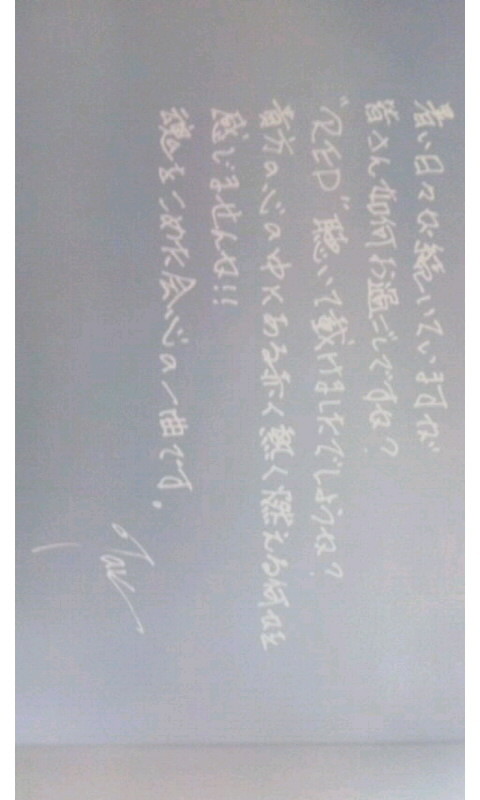 暑い日々が続いていますが
皆さん如何お過ごしですか?
"RED"聴いて戴けましたでしょうか?
貴方の心の中にある赤く熱く燃える何かを
感じませんか!!
魂をこめた会心の一曲です。